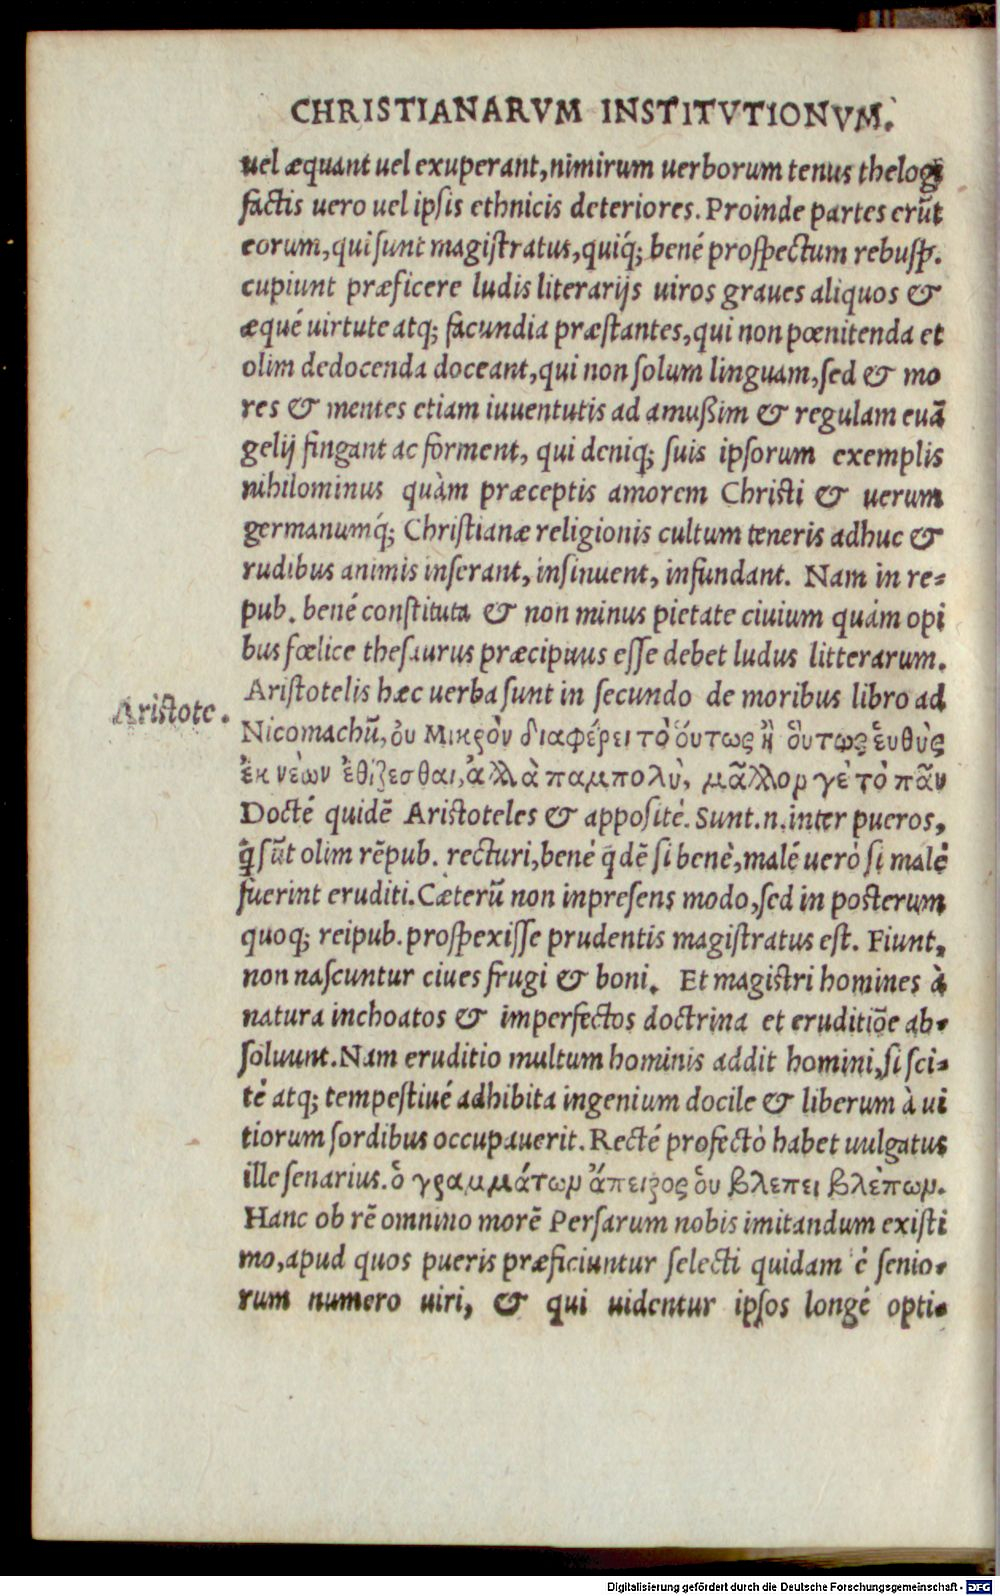 CHRISTIANARVM INSTITVTIONVM.
uel æquant uel exuperant, nimirum uerborum tenus thelogi
factis uero uel ipsis ethnicis deteriores. Proinde partes erūt
eorum, qui sunt magistratus, quiq́; bené prospectum rebusp.
cupiunt præficere ludis literarijs uiros graues aliquos &
æqué uirtute atq; facundia præstantes, qui non pœnitenda et
olim dedocenda doceant, qui non solum linguam, sed & mo
res & mentes etiam iuuentutis ad amußim & regulam euā
gelij fingant ac forment, qui deniq; suis ipsorum exemplis
nihilominus quàm præceptis amorem Christi & uerum
germanumq́; Christianæ religionis cultum teneris adhuc &
rudibus animis inserant, insinuent, infundant. Nam in re-
pub. bené constituta & non minus pietate ciuium quám opi
bus fœlice thesaurus præcipuus esse debet ludus litterarum.
Aristotelis hæc uerba sunt in secundo de moribus libro ad
Aristote.
Nicomachū, ὀυ Μικρὸν διαφέρει τὸ ὅυτως ἢ ὅυτως ἐυθὺς
ἐκ νέων ἐθίζεσθαι, ἀλλὰ παμπολὺ, μᾶλλον γὲ τὸ πᾶν
Docté quidē Aristoteles & appositè. Sunt.n.inter pueros,
ꝗ sūt olim rēpub. recturi, bené qdē si benè, malé uerò si malè
fuerint eruditi. Cæterū non inpresens modo, sed in posterum
quoq; reipub. prospexisse prudentis magistratus est. Fiunt,
non nascuntur ciues frugi & boni. Et magistri homines à
natura inchoatos & imperfectos doctrina et eruditiōe ab-
soluunt. Nam eruditio multum hominis addit homini, si sci-
té atq; tempestiué adhibita ingenium docile & liberum à ui
tiorum sordibus occupauerit. Recté profectò habet uulgatus
ille senarius. ὁ γραμμάτων ἄπειρος ὀυ βλεπει βλέπων.
Hanc ob rē omnino morē Persarum nobis imitandum existi
mo, apud quos pueris præficiuntur selecti quidam é senio-
rum numero uiri, & qui uidentur ipsos longé opti-
Digitalisierung gefördert durch die Deutsche Forschungsgemeinschaft - DFG